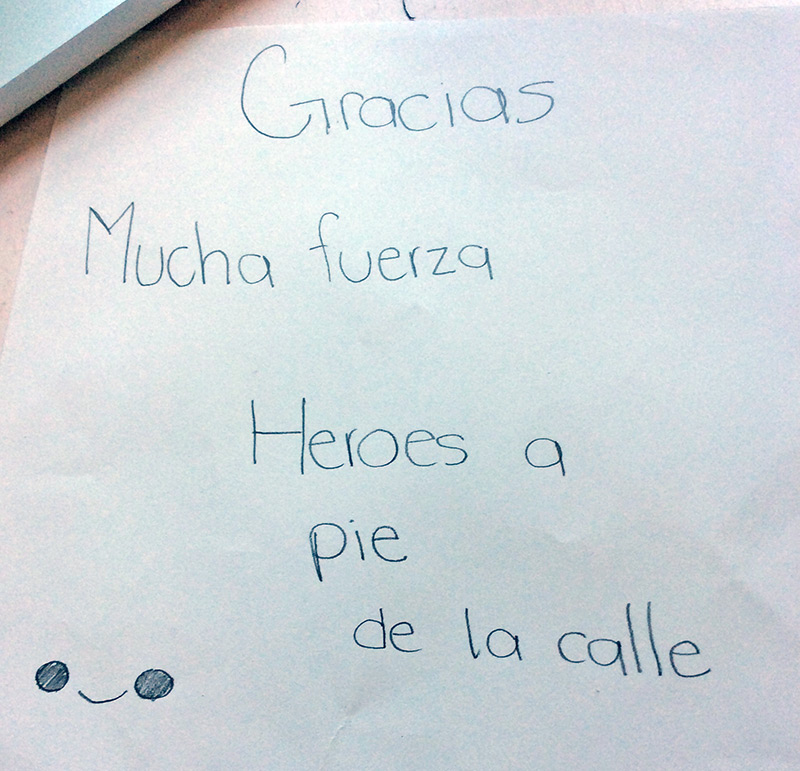 Gracias
Mucha fuerza
Heroes a
pie
de la calle